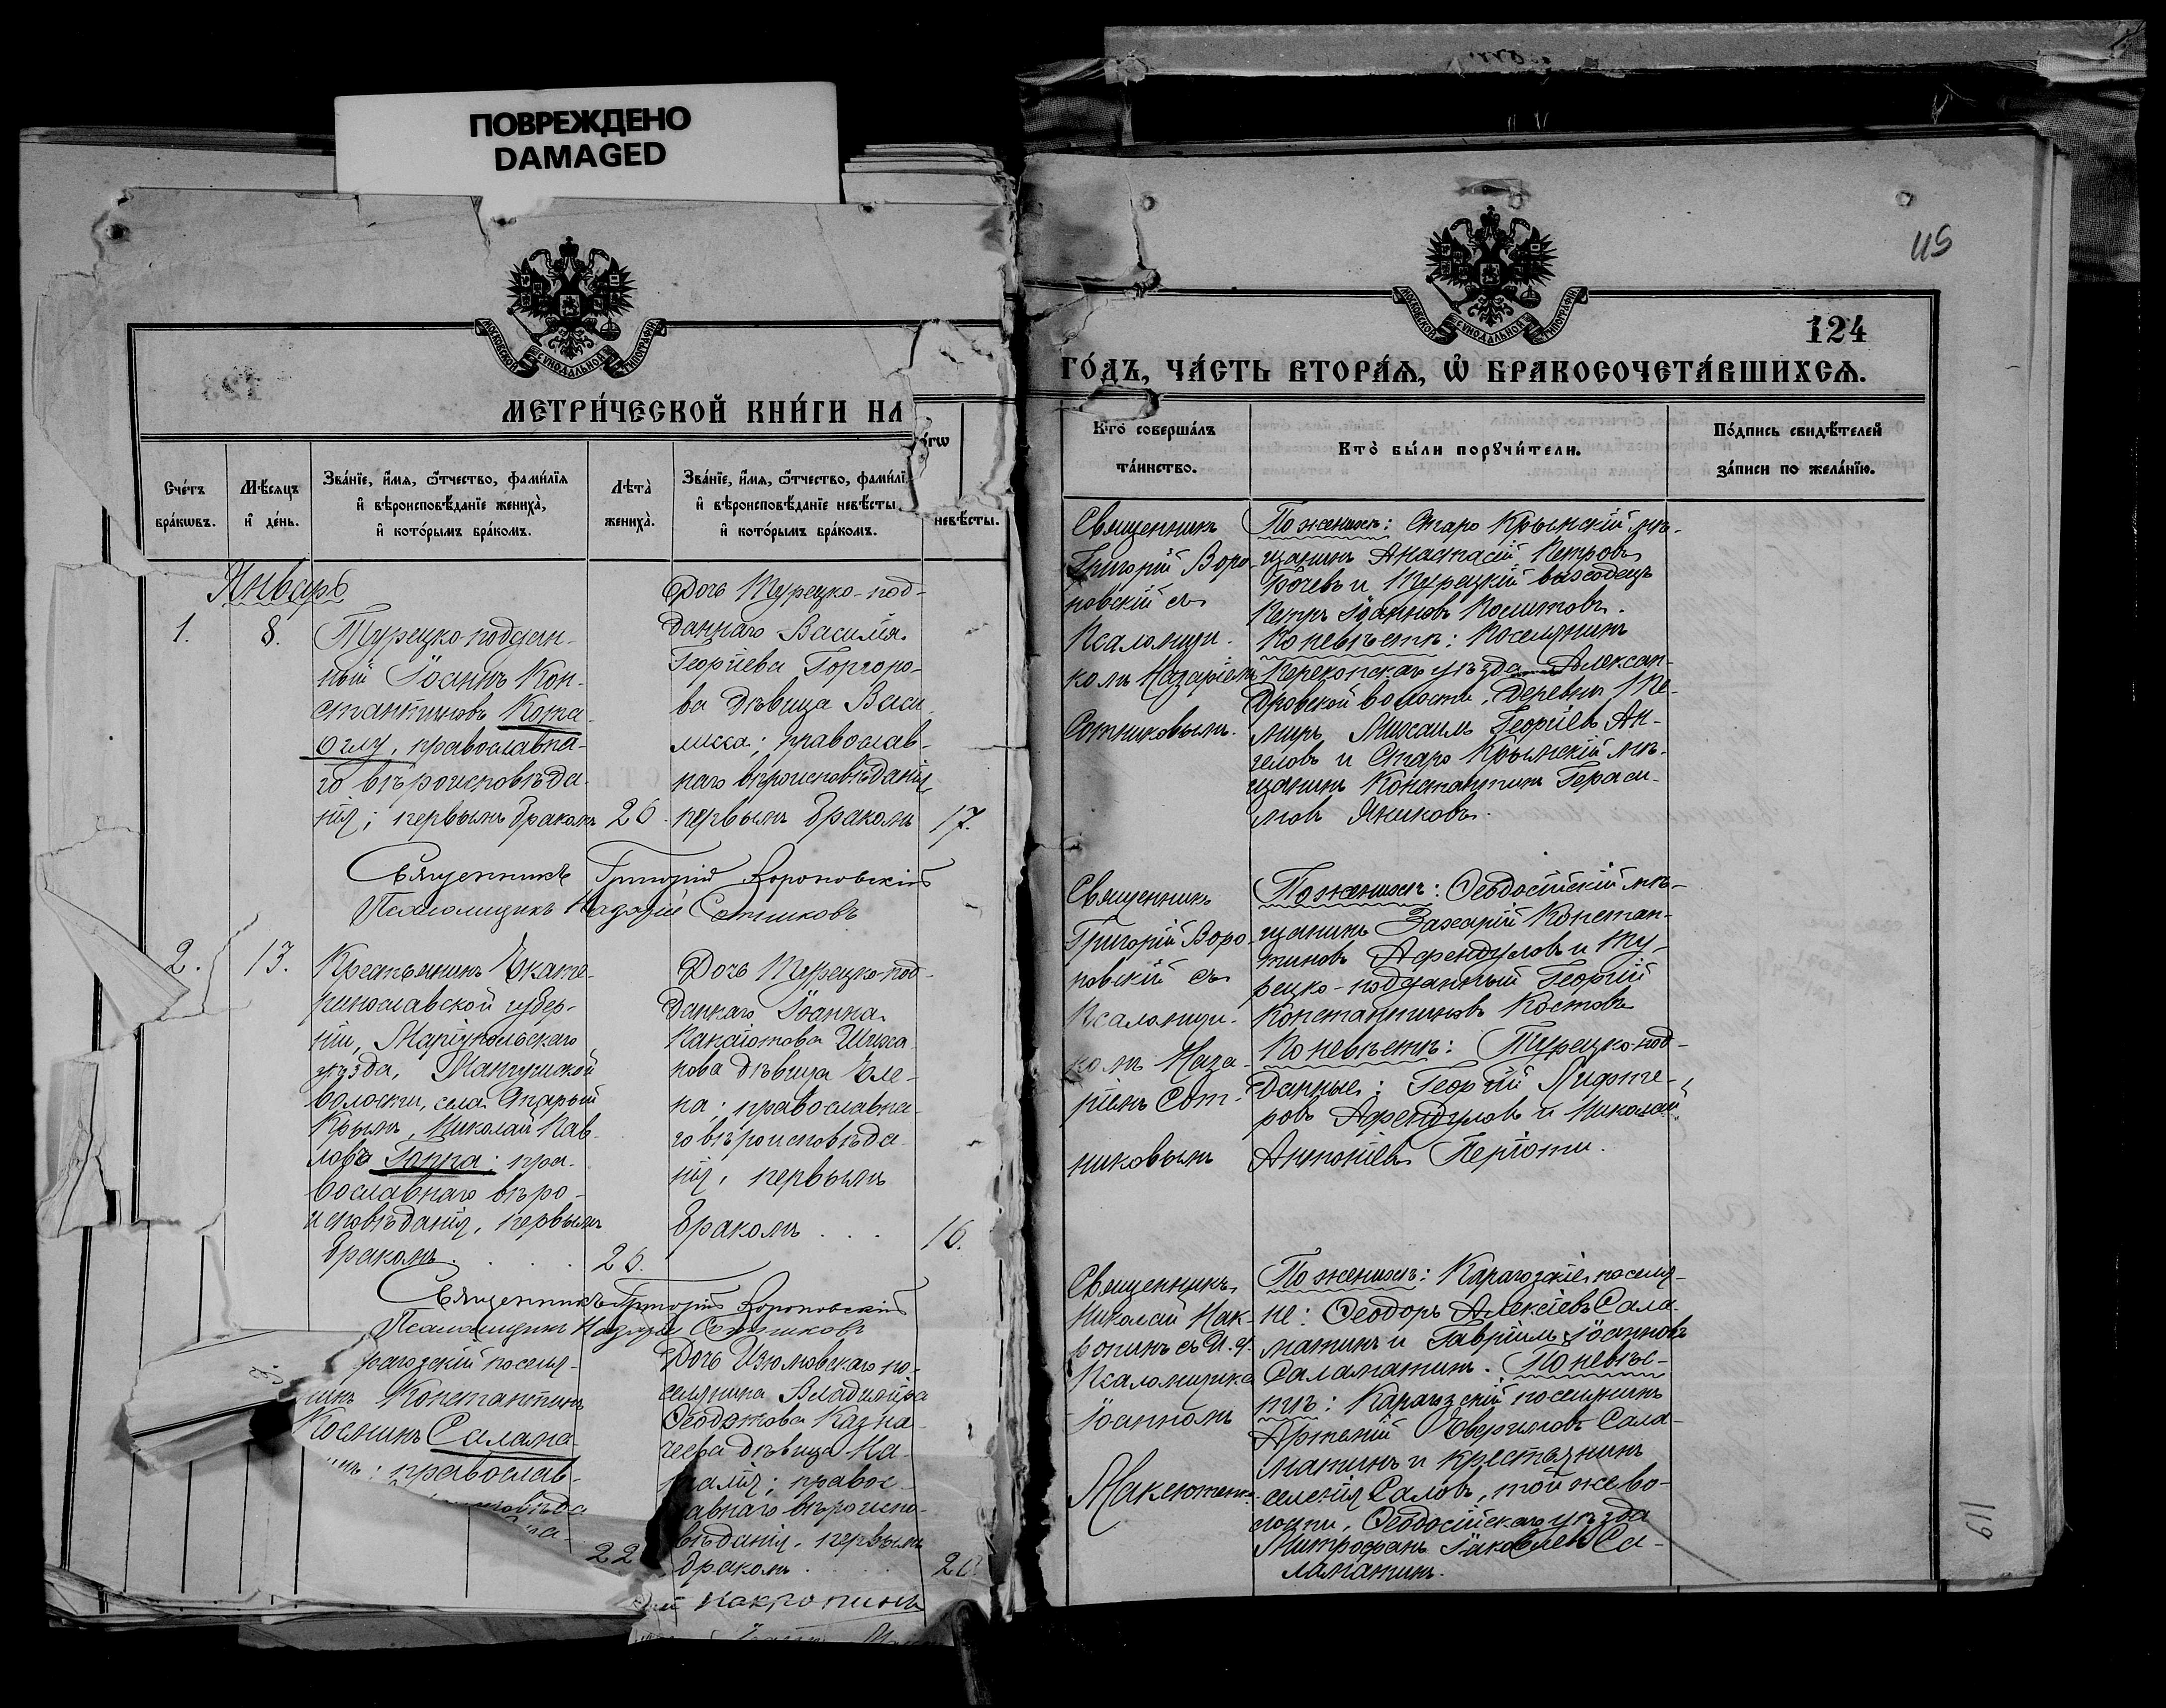 ПОВРЕЖДЕНО
DAMAGED
МОСКОВСКОЙ СУНОДАЛЬНОЙ ТИПОГРАФІИ
МЕТРИ́ЧЕСКОЙ КНИ́ГИ НА
Сче́тъ бра́кωвъ.
Мѣ́сяцъ и҆ де́нь.
Зва́нїе, и҆́мя, ѻ҆́тчество, фами́лїя
и҆ вѣроисповѣ́данїе жениха̀,
и҆ кото́рымъ бра́комъ.
Лѣта̀ жениха̀.
Зва́нїе, и҆́мя, ѻ҆́тчество, фами́лї
и҆ вѣроисповѣ́данїе невѣ́сты,
и҆ кото́рымъ бра́комъ.
невѣ́сты.
Январь
1.
8.
Турецко-поддан-
ный Іоаннъ Кон-
стантиновъ Кота-
Оглу, православна-
го вѣроисповѣда-
нія; первымъ бракомъ
26.
Дочь Турецко-под-
даннаго Василія
Георгіева Горгоро-
ва дѣвица Васи-
лисса; православ-
наго вѣроисповѣданія
первымъ бракомъ
17.
Священникъ Григорій Вороновскій
Псаломщикъ Назарій Сотниковъ
2.
13.
Крестьянинъ Екате-
ринославской губер-
ніи, Маріупольскаго
уѣзда, Мангушской
волости, села Старый
Крымъ, Николай Пав-
ловъ Гоппа: пра-
вославнаго вѣро-
исповѣданія, первымъ
бракомъ . . . .
26.
Дочь Турецко-под-
даннаго Іоанна
Панаіотова Шиша-
нова дѣвица Еле-
на; православна-
го вѣроисповѣда-
нія, первымъ
бракомъ . . .
16.
Священникъ Григорій Вороновскій
Псаломщикъ Назарій Сотниковъ
3.
рагозскій поселя-
нинъ Константинъ
Косминъ Салама-
инъ: православ-
22
Дочь Изюмовскаго по-
селянина Владиміра
Ѳеодотова Казна-
чеева дѣвица На-
талія; правос-
лавнаго вѣроиспо-
вѣданія, первымъ
бракомъ . . . .
20
Накропинъ
115
МОСКОВСКОЙ СУНОДАЛЬНОЙ ТИПОГРАФІИ
124
ГО́ДЪ, ЧА́СТЬ ВТОРА́Я, Ѡ҆ БРАКОСОЧЕТА́ВШИХСЯ.
Кто̀ соверша́лъ
та́инство.
Кто̀ бы́ли порꙋчи́тели.
По́дпись свидѣ́телей
за́писи по жела́нїю.
Священникъ
Григорій Воро-
новскій съ
Псаломщи-
комъ Назаріемъ
Сотниковымъ.
По женихѣ: Старо Крымскій мѣ-
щанинъ Анастасій Петровъ
Бочевъ и Турецкій выходецъ
Петръ Іоанновъ
По невѣстѣ: Поселянинъ
Перекопскаго уѣзда Алексан-
дровской волости, деревни
Михаилъ Георгіевъ Ан-
геловъ и Старо Крымскій мѣ-
щанинъ Константинъ Гераси-
мовъ Яниковъ.
Священникъ
Григорій Воро-
новскій съ
Псаломщи-
комъ Наза-
ріемъ Сот-
никовымъ
По женихѣ: Ѳеодосійскій мѣ-
щанинъ Захарій Констан-
тиновъ Афендуловъ и Ту-
рецко-подданный Георгій
Константиновъ Костовъ
По невѣстѣ: Турецко-под-
данные: Георгій
ровъ Афендуловъ и Николай
Антоніевъ Перготи.
Священникъ
Николай Нак-
ропинъ съ И. д.
Псаломщика
Іоанномъ
По женихѣ: Карагозскіе поселя-
не: Ѳеодоръ Алексіевъ Сала-
матинъ и Гавріилъ Іоанновъ
Саламатинъ. По невѣс-
тѣ: Карагозскій поселянинъ
Артемій Аверкіевъ Сала-
матинъ и крестьянинъ
селенія Салов, той же во-
лости, Ѳеодосійскаго уѣзда
Митрофанъ Іаковлевъ Са-
ламатинъ.
119